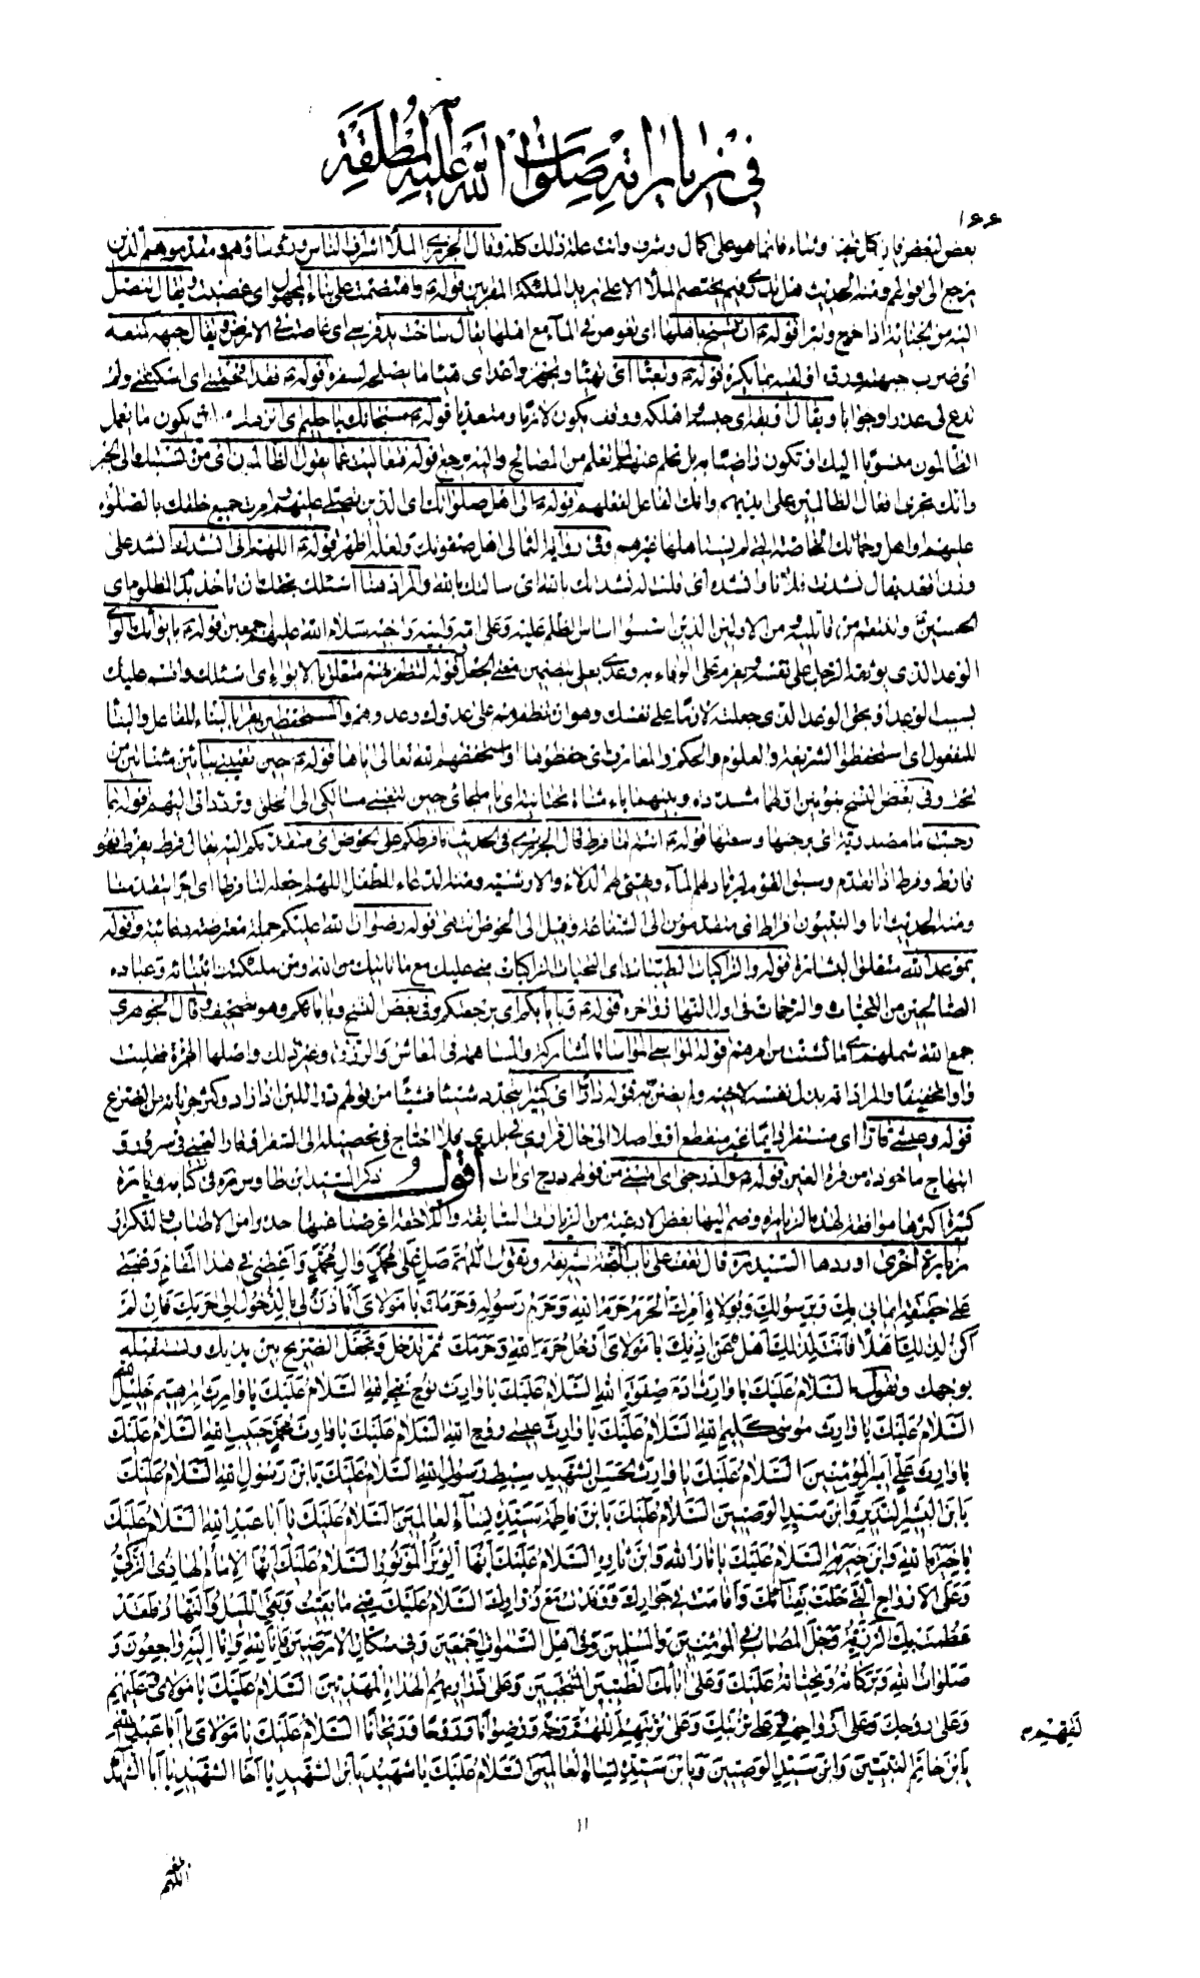 في زياراته صلوات الله عليه المطلقة
١٦٦
بعض لبعض فان كل فخر وثناء فانما هو على كمال وشرف وانت علة ذلك كله وقال الجزري الملأ اشراف الناس ورؤساؤهم ومقدموهم الذين
يرجع الى قولهم ومنه الحديث هل تدري فيم يختصم الملأ الاعلى يريد الملئكة المقربين قوله واهتضمت على بناء المجهول اي غصبت ويقال تنصل
اليه من الجناية اذا خرج وتبرأ قوله ان تسيخ باهلها اي تغوص في المآء مع اهلها يقال ساخت يد فرسي اي غاصت في الارض ويقال جبهه كمنعه
اي ضرب جبهته ورده او لقيه بما يكره قوله وتعبّا اي تهيّا وتجهز واعد اي هيّئا ما يصلح لسفره قوله فقد اي اسكتتني ولم
تدع لي عذرا وجوابا ويقال اوبقه اي حبسه او اهلكه ووقف يكون لازما ومتعديا قوله سبحانك يا حليم اي انزهك ان يكون ما يعمل
الظالمون منسوبا اليك او تكون راضيا به بل تحلم عنهم لما تعلم من المصالح واليه يرجع قوله فتعاليت عما يقول الظالمون اي من نسبتك الى الجبر
وانك مجري افعال الظالمين على ايديهم وانك الفاعل لفعلهم قوله الى اهل صلواتك اي الذين تصلي عليهم من جميع خلقك بالصلوة
عليهم واهل رحماتك الخاصة التي لم يستاهلها غيرهم وفي رواية الثمالي اهل صفوتك ولعله اظهر قوله اللهم اني انشدك انشد على
وزن اقعد يقال نشدت فلانا وانشده اي قلت له نشدتك بالله اي سالتك بالله والمراد هنا اسئلك بحقك ان تاخذ بدم المظلوم اي
الحسين وتنتقم من قاتليه ومن الاولين الذين اسسوا اساس الظلم عليه وعلى ابيه وامه واخيه سلام الله عليهم اجمعين قوله بايوائك
الوعد الذي يوئيه الرجل على نفسه ويعزم على الوفاء به وعدي بعلى بتضمين معنى الجعل قوله لتظفرنهم متعلق بالايواء اي اسئلك واقسم عليك
بسبب الوعد او بحق الوعد الذي جعلته لازما على نفسك وهو ان تظفرهم على عدوك وعدوهم والمستحفظين يقرا بالبناء للفاعل والبناء
للمفعول اي استحفظوا الشريعة والعلوم والحكم والمعارف اي حفظوها او استحفظهم الله تعالى اياها قوله حين تعييني بيائين مثناتين من
تحت وفي بعض النسخ بنونين اولهما مشددة وبينهما ياء مثناة تحتانية اي يا ملجاي حين تتعبني مسالكي الى الخلق وترددي اليهم قوله بما
رحبت ما مصدرية اي برحبها وسعتها قوله انت لنا فرط قال الجزري في الحديث انا فرطكم على الحوض اي متقدمكم اليه يقال فرط يفرط فهو
فارط وفرط اذا تقدم وسبق القوم ليرتاد لهم المآء ويهيّئ لهم الدلاء والارشية ومنه الدعاء للطفل اللهم اجعله لنا فرطا اي اجرا يتقدمنا
ومنه الحديث انا والنبيون فراط اي متقدمون الى الشفاعة وقيل الى الحوض انتهى قوله رضوان الله عليكم جملة معترضة دعائية وقوله
بموعد الله متعلق بالبشارة قوله والزاكيات الطيبات اي التحيات الزاكيات مني عليك مع ما تاتيك من الله ومن ملئكته وانبيائه وعباده
الصالحين من التحيات والرحمات في اوائل النهار واواخره قوله وفي بعض النسخ وهو تصحيف وقال الجوهري
جمع الله شملهم اي ما تشتت من امرهم قوله المواسي المواساة المشاركة والمساهمة في المعاش والرزق وغير ذلك واصلها الهمزة فقلبت
واوا تخفيفا والمراد انه بذل نفسه لاخيه ولم يضن به قوله دارّا اي كثيرا يتجدد شيئا فشيئا من قولهم در اللبن اذا زاد وكثر جريانه من الضرع
قوله وعيشي قارّا اي مستقرا دائما غير منقطع او واصلا الى حال قراري في بلدي فلا احتاج في تحصيله الى السفر او قارّ العين في سرور و
ابتهاج ماخوذ من قرة العين قوله وادرجني اي من قولهم درج اي مات اقول وذكر السيد ابن طاوس في كتابه زيارة
كبيرة اكثرها موافقة لهذه الزيارة وضم اليها بعض الادعية من الزيارات السابقة واللاحقة اعرضنا عنها حذرا من الاطناب والتكرار
زيارة اخرى اوردها السيد قال تقف على باب القبة الشريفة وتقول اللهم صل على محمد وآل محمد واعطني في هذا المقام رغبتي
على حقيقة ايماني بك وبرسولك وبولاة امرك الحرم حرم الله وحرم رسوله وحرمك يا مولاي أتأذن لي بالدخول الى حرمك فان لم
اكن لذلك اهلا فانت لذلك اهل عن اذنك يا مولاي ادخل حرم الله وحرمك ثم تدخل وتجعل الضريح بين يديك وتستقبله
بوجهك وتقول السلام عليك يا وارث ادم صفوة الله السلام عليك يا وارث نوح نبي الله السلام عليك يا وارث ابرهيم خليل الله
السلام عليك يا وارث موسى كليم الله السلام عليك يا وارث عيسى روح الله السلام عليك يا وارث محمد حبيب الله السلام عليك
يا وارث علي امير المؤمنين السلام عليك يا وارث الحسن الشهيد سبط رسول الله السلام عليك يا بن رسول الله السلام عليك
يا بن البشير النذير وابن سيد الوصيين السلام عليك يا بن فاطمة سيدة نساء العالمين السلام عليك يا ابا عبد الله السلام عليك
يا خيرة الله وابن خيرته السلام عليك يا ثار الله وابن ثاره السلام عليك ايها الوتر الموتور السلام عليك ايها الامام الهادي الزكي
وعلى الارواح التي حلت بفنائك واقامت في جوارك ووفدت مع زوارك السلام عليك مني ما بقيت وبقي الليل والنهار فلقد
عظمت بك الرزية وجل المصاب في المؤمنين والمسلمين وفي اهل السموات اجمعين وفي سكان الارضين فانا لله وانا اليه راجعون و
صلوات الله وبركاته وتحياته عليك وعلى ابائك الطيبين المنتجبين وعلى ذراريهم الهداة المهديين السلام عليك يا مولاي وعليهم
وعلى روحك وعلى ارواحهم وعلى تربتك وعلى تربتهم اللهم لقهم رحمة ورضوانا وروحا وريحانا السلام عليك يا مولاي يا ابا عبد الله
يا بن خاتم النبيين وابن سيد الوصيين ويا بن سيدة نساء العالمين السلام عليك يا شهيد يا بن الشهيد يا اخا الشهيد يا ابا الشهداء
١١
اللهم